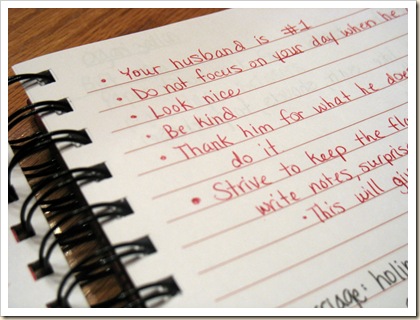 • Your husband is #1
• Do not focus on your day when he
• Look nice
• Be kind
• Thank him for what he does
do it
• Strive to keep the
write notes, surprise
• This will